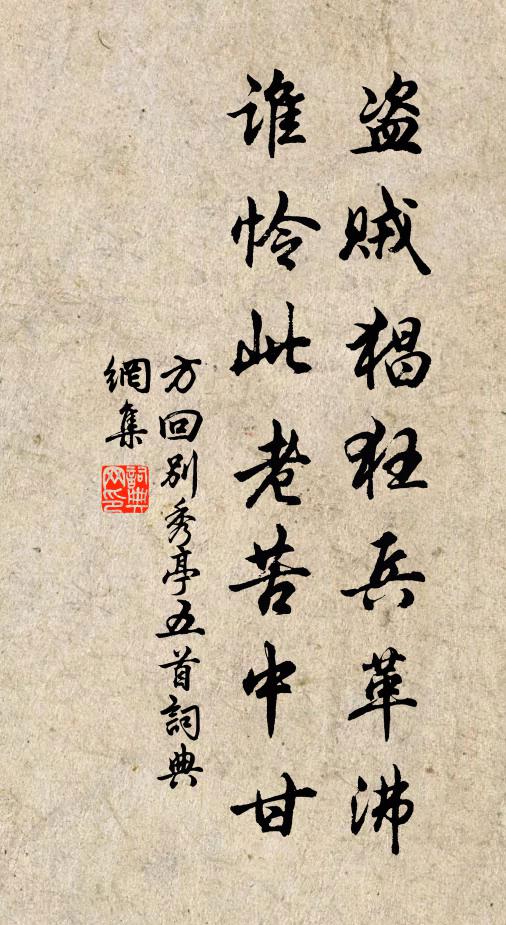 盗贼猖狂兵革沸
谁怜此老苦中甘
方回别秀亭五首詞典
網集
詞典网印